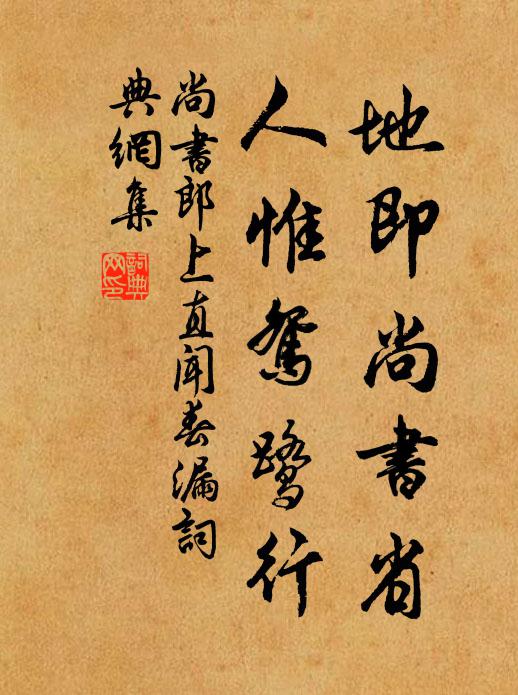 地即尚書省
人惟鴛鷺行
尚書郎上直聞春漏詞
典網集
詞典網印